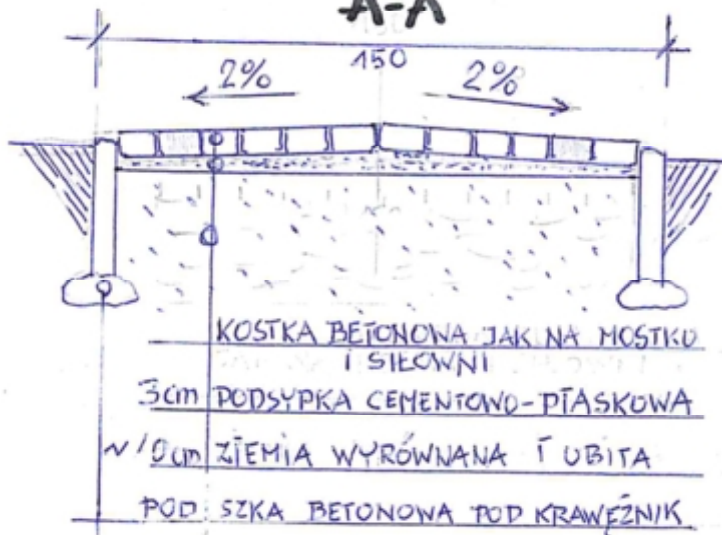 A-A
150
2% 2%
KOSTKA BETONOWA JAK NA MOSTKU
I SIŁOWNI
3cm PODSYPKA CEMENTOWO-PIASKOWA
~10cm ZIEMIA WYRÓWNANA I UBITA
POD SZKA BETONOWA POD KRAWĘŻNIK